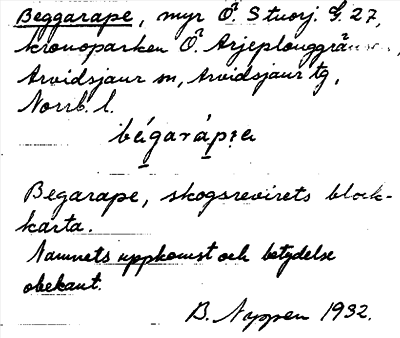 Beggarape, myr Ö. Stuorj. G. 27,
kronoparken Ö. Arjeplouggränsen,
Arvidsjaur sn, Arvidsjaur tg,
Norrb. l.
Begarape, skogsrevirets block-
karta.
Namnets uppkomst och betydelse
obekant.
B. Nyppen 1932.